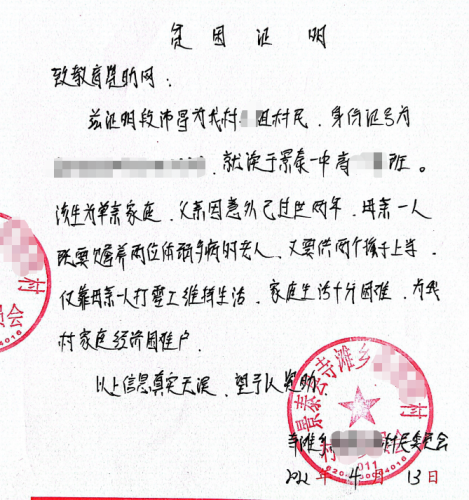 贫困证明
致教育资助网：
兹证明段沛 为我村 组村民，身份证号为
，就读于景泰一中高 班。
该生为单亲家庭，父亲因意外已过世两年，母亲一人
既要赡养两位体弱多病的老人，又要供两个孩子上学，
仅靠母亲一人打零工维持生活，家庭生活十分困难，为我
村家庭经济困难户。
以上信息真实无误，望予以资助。
景泰 寺滩乡 村
寺滩乡 村民委员会
2022年4月13日
村
员会